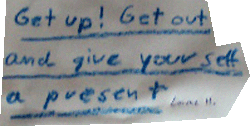 Get up! Get out
and give yourself
a present